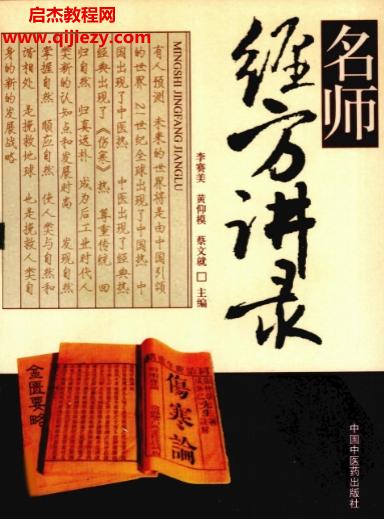 启杰教程网
www.qijiejy.com
名师
经方讲录
MINGSHI JINGFANG JIANGLU
有人预测 未来的世界将是由中国引领
的世界 21世纪全球出现了中国热 中
国出现了中医热 中医出现了经典热
经典出现了《伤寒》热 尊重传统 回
归自然 归真返朴 成为后工业时代人
类新的认知点和发展时尚 发现自然
掌握自然 顺应自然 使人类与自然和
谐相处 是挽救地球 也是挽救人类自
身的新的发展战略
李赛美 黄仰模 蔡文就 □ 主编
傷寒論
金匱要略
中国中医药出版社